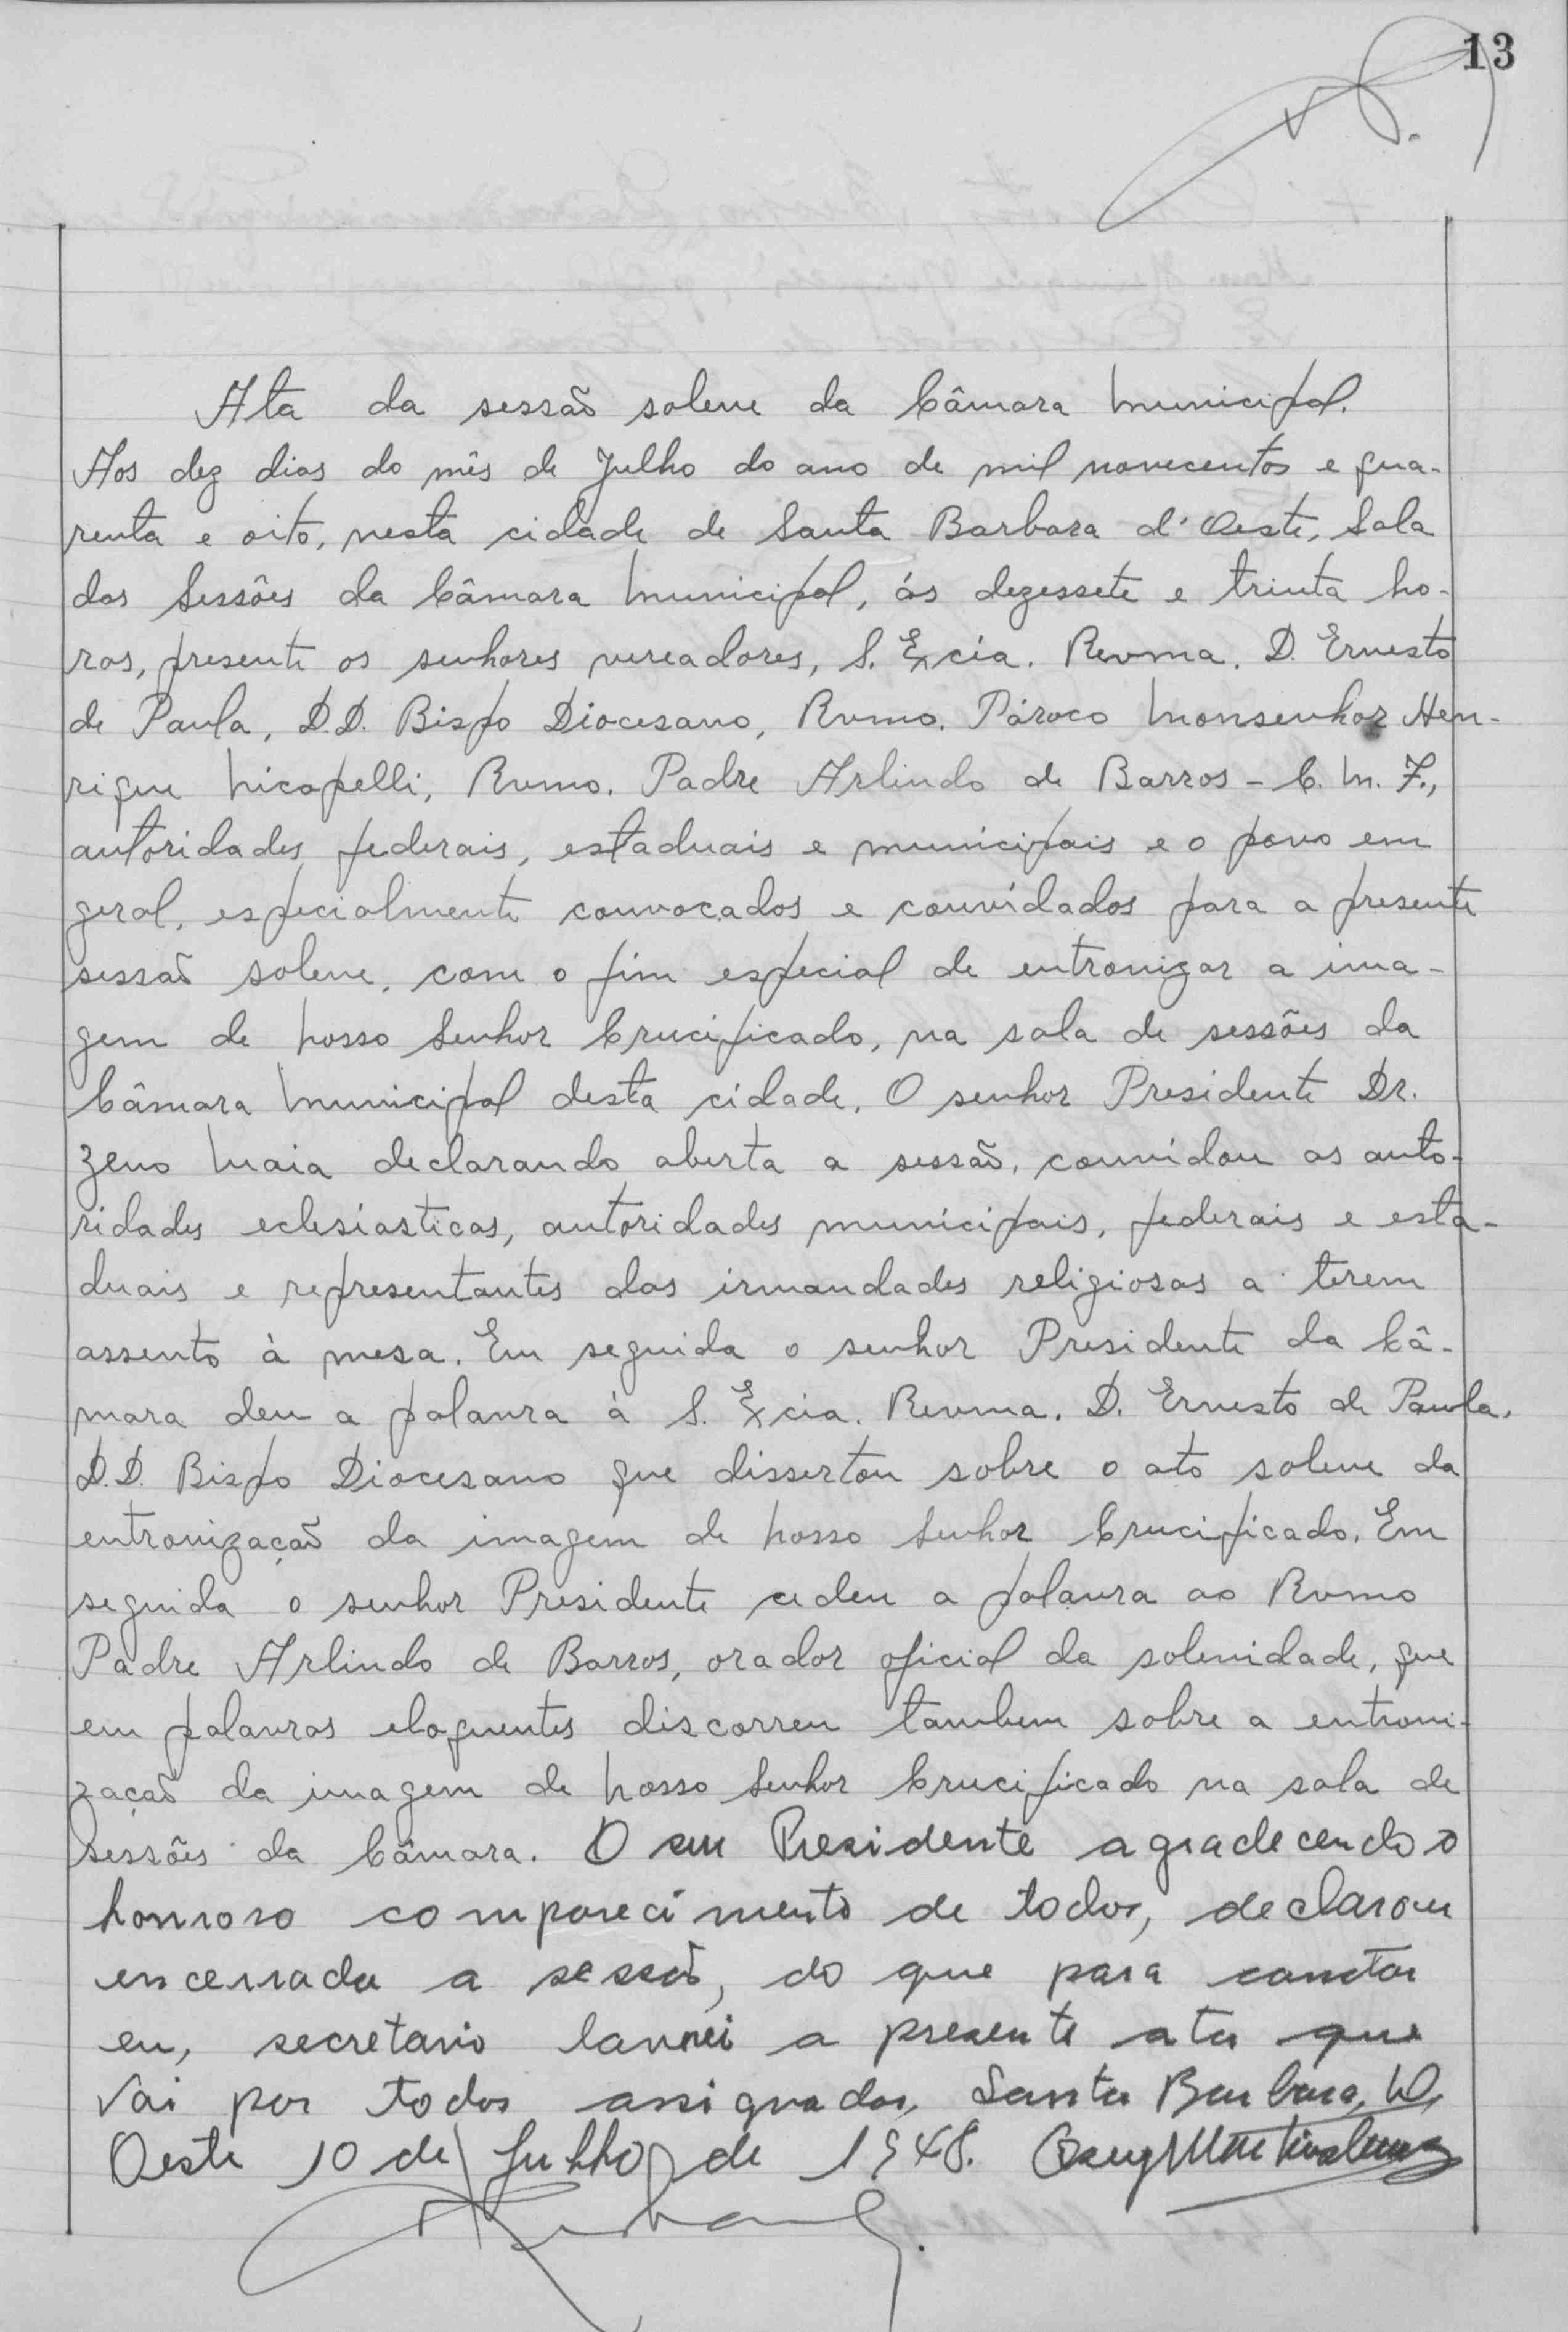 13
Ata da sessão solene da Câmara Municipal.
Aos dez dias do mês de Julho do ano de mil novecentos e qua-
renta e oito, nesta cidade de Santa Barbara d'Oeste, Sala
das Sessões da Câmara Municipal, ás dezessete e trinta ho-
ras, presente os senhores vereadores, S. Excia. Revma. D. Ernesto
de Paula, D.D. Bispo Diocesano, Rvmo. Pároco Monsenhor Hen-
rique Nicopelli, Rvmo. Padre Arlindo de Barros - C. M. F.,
autoridades federais, estaduais e municipais e o povo em
geral, especialmente convocados e convidados para a presente
sessão solene, com o fim especial de entronizar a ima-
gem de Nosso Senhor Crucificado, na sala de sessões da
Câmara Municipal desta cidade. O senhor Presidente Dr.
Zeno Maia declarando aberta a sessão, convidou as auto-
ridades eclesiasticas, autoridades municipais, federais e esta-
duais e representantes das irmandades religiosas a terem
assento à mesa. Em seguida o senhor Presidente da Câ-
mara deu a palavra à S. Excia. Revma. D. Ernesto de Paula,
D.D. Bispo Diocesano que dissertou sobre o ato solene da
entronização da imagem de Nosso Senhor Crucificado. Em
seguida o senhor Presidente cedeu a palavra ao Rvmo
Padre Arlindo de Barros, orador oficial da solenidade, que
em palavras eloquentes discorreu tambem sobre a entroni-
zação da imagem de Nosso Senhor Crucificado na sala de
sessões da Câmara. O snr Presidente agradecendo o
honroso comparecimento de todos, declarou
encerrada a sessão, do que para constar
eu, secretario lavrei a presente ata que
vai por todos assignados, Santa Barbara, D,
Oeste 10 de Julho de 1948.